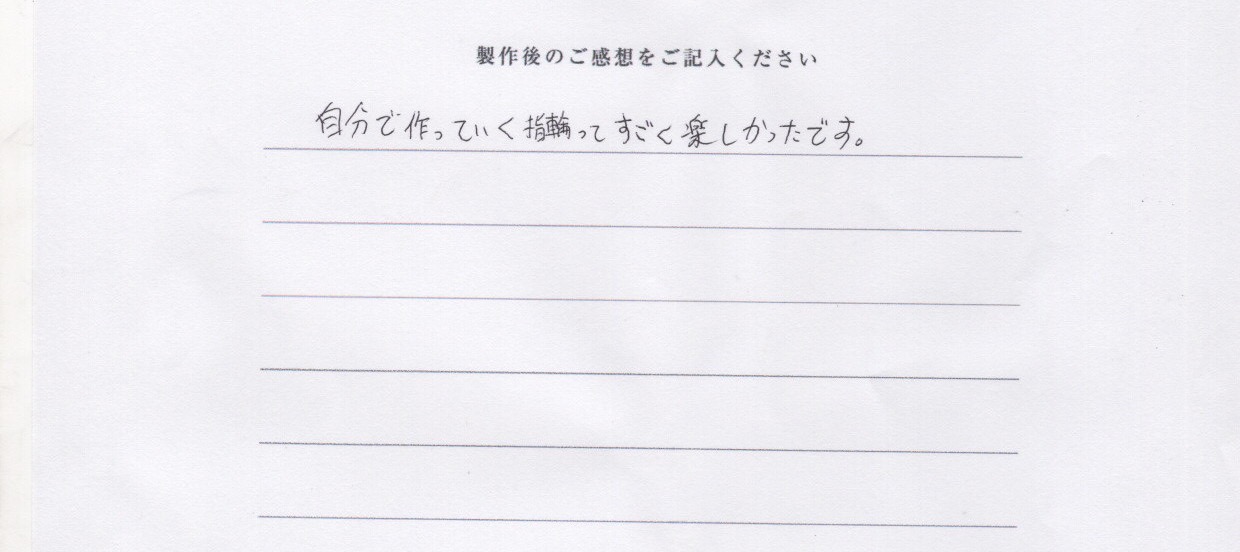 製作後のご感想をご記入ください
自分で作っていく指輪ってすごく楽しかったです。